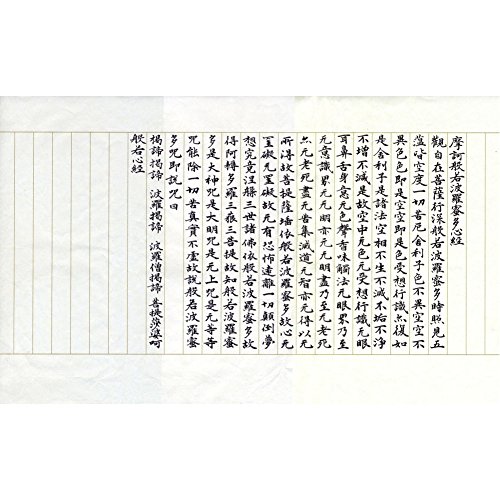 摩訶般若波羅蜜多心経
観自在菩薩行深般若波羅蜜多時照見五
蘊皆空度一切苦厄舎利子色不異空空不
異色色即是空空即是色受想行識亦復如
是舎利子是諸法空相不生不滅不垢不浄
不増不減是故空中无色无受想行識无眼
耳鼻舌身意无色聲香味觸法无眼界乃至
无意識界无无明亦无无明盡乃至无老死
亦无老死盡无苦集滅道无智亦无得以无
所得故菩提薩埵依般若波羅蜜多故心无
罣礙无罣礙故无有恐怖遠離一切顛倒夢
想究竟涅槃三世諸佛依般若波羅蜜多故
得阿耨多羅三藐三菩提故知般若波羅蜜
多是大神咒是大明咒是无上咒是无等等
咒能除一切苦真實不虚故説般若波羅蜜
多咒即説咒曰
揭諦揭諦 波羅揭諦 波羅僧揭諦 菩提薩婆訶
般若心経